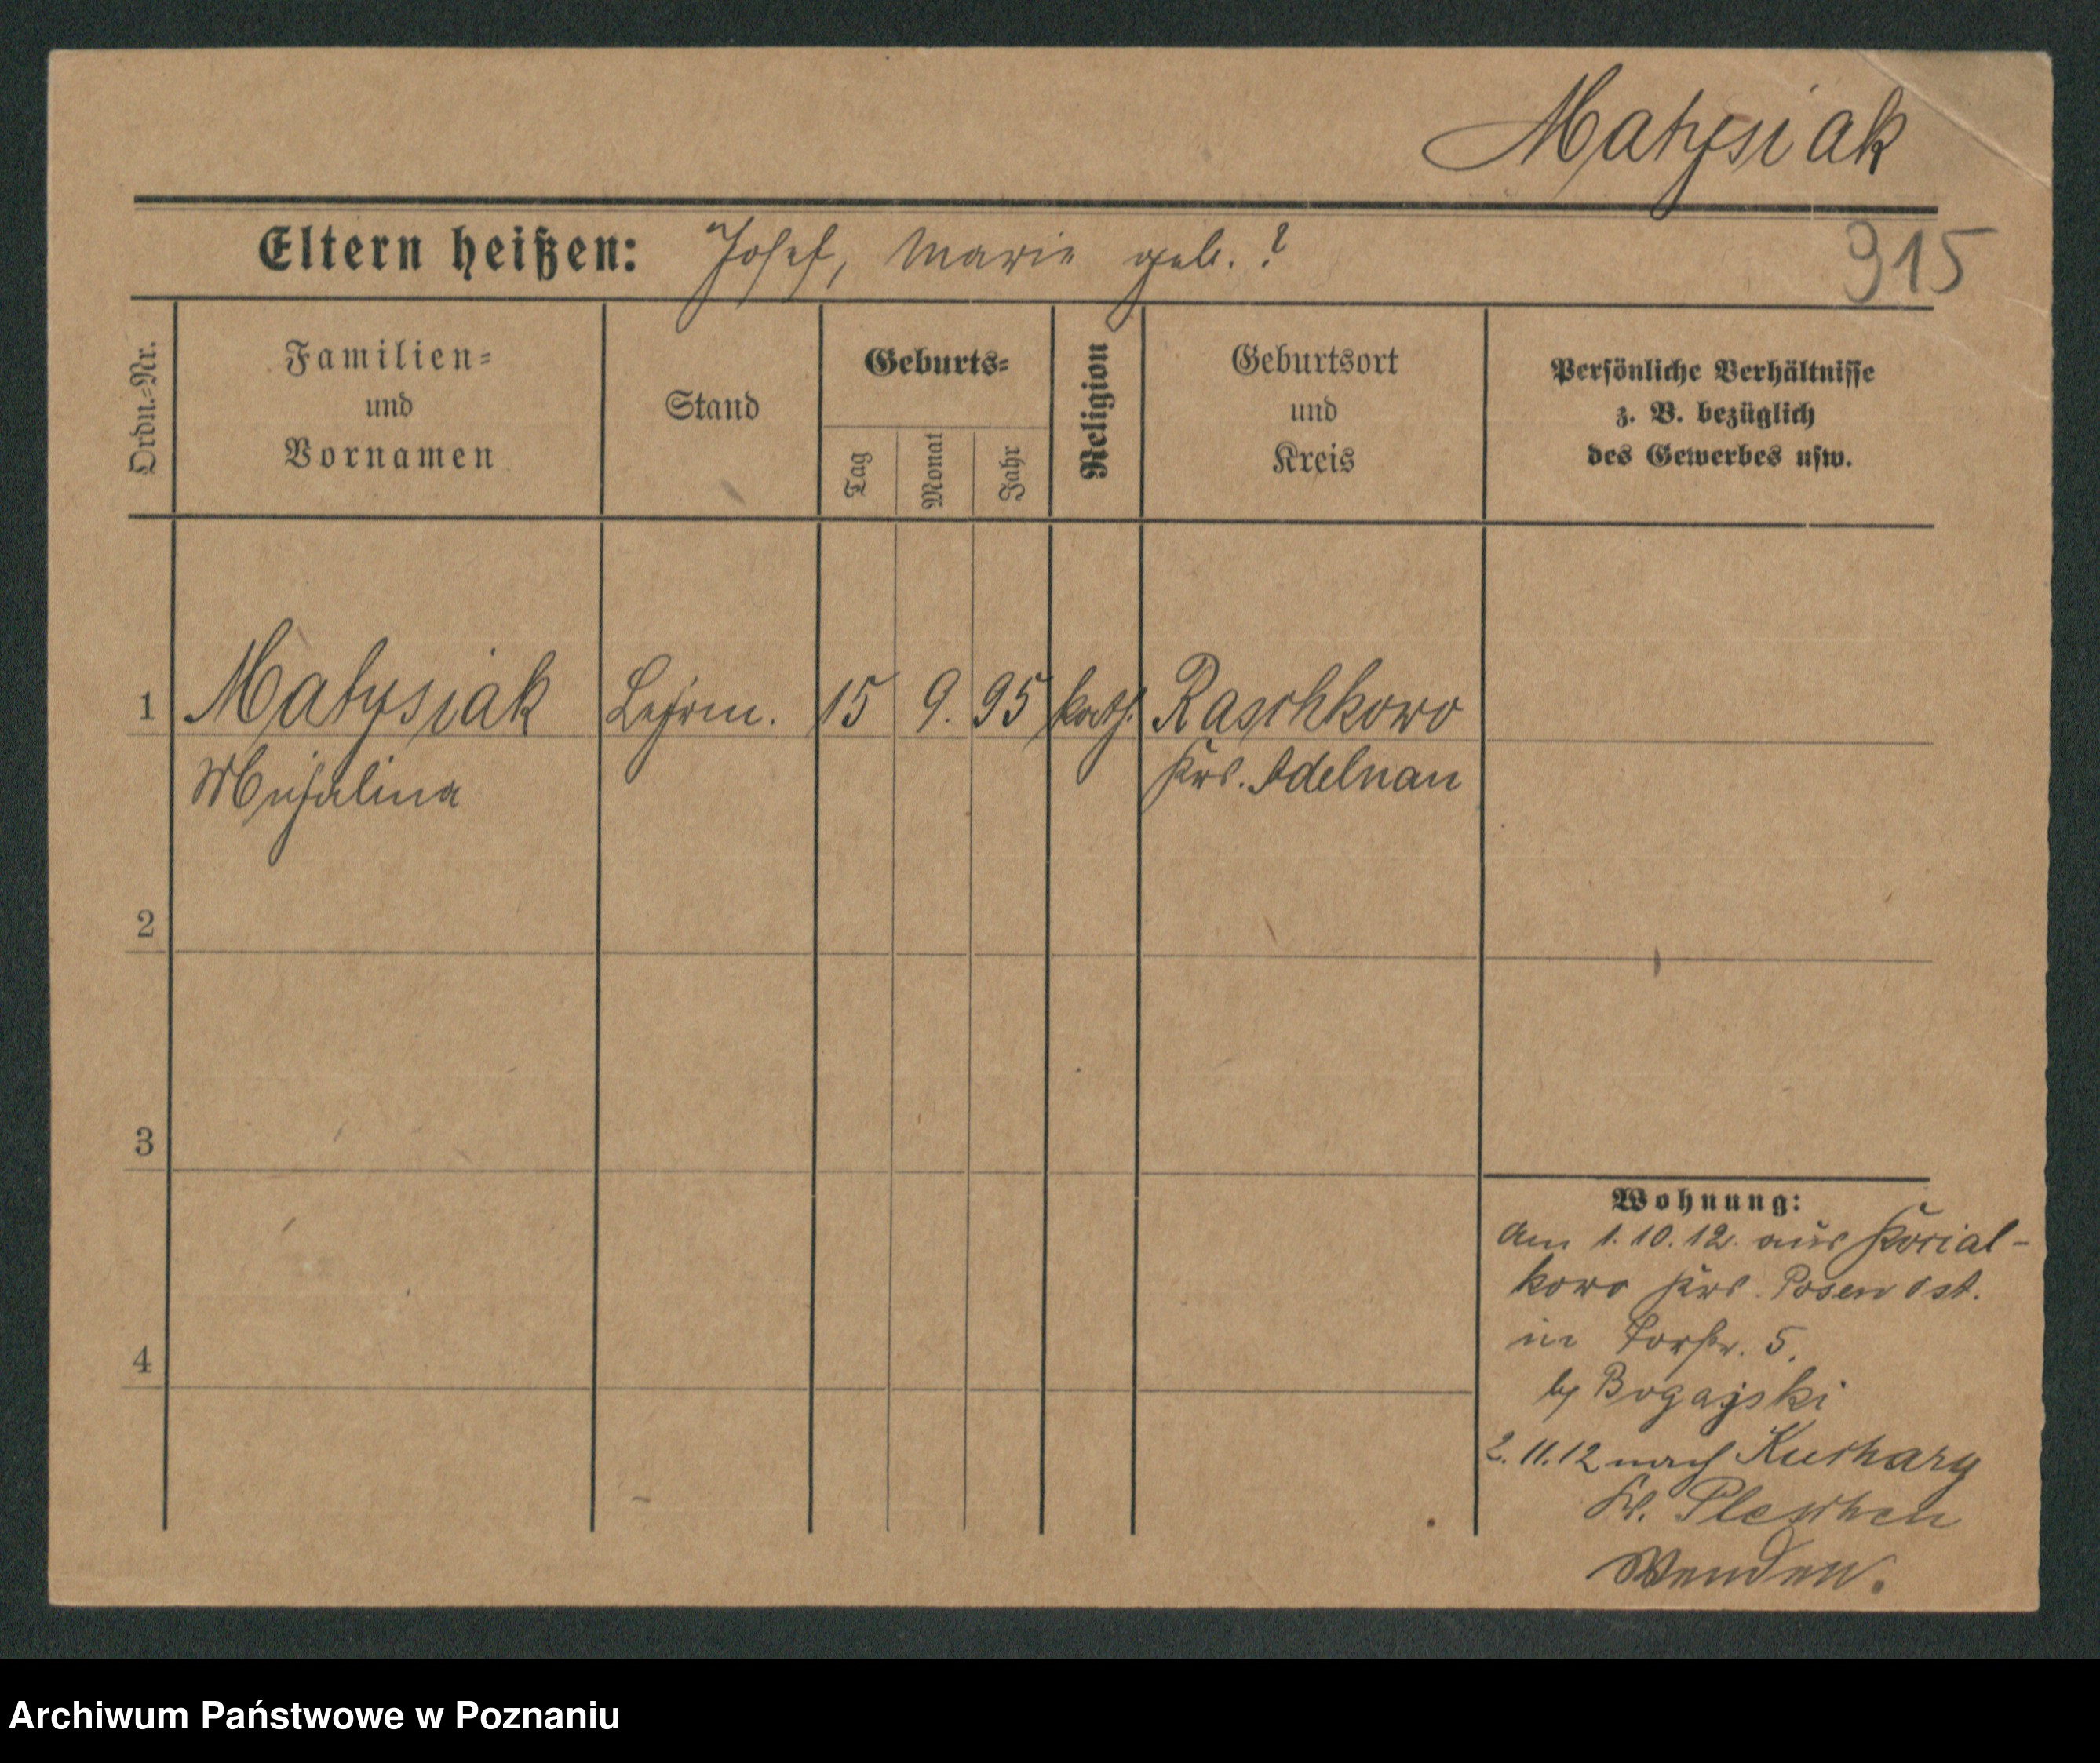 Matysiak
Eltern heißen: Josef, Marie geb. ?
915
Ordn.-Nr.
Familien-
und
Vornamen
Stand
Geburts-
Tag
Monat
Jahr
Religion
Geburtsort
und
Kreis
Persönliche Verhältnisse
z. B. bezüglich
des Gewerbes usw.
1 Matysiak 15 9. 95 kath. Raschkowo
Michalina Krs. Adelnau
2
3
4
Wohnung:
am 1.10.12. aus Kozial-
kowo Krs. Posen Ost.
in Torstr. 5.
by Bogajski
2.11.12 nach Kucharg
Kr. Pleschen
Wenden.
Archiwum Państwowe w Poznaniu